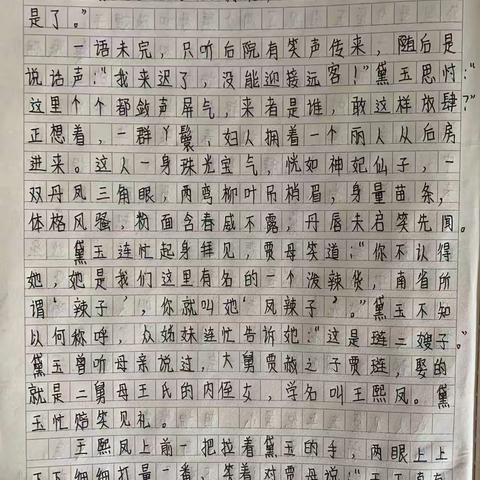 是了。”
一语未完，只听后院有笑声传来，随后是
说话声：“我来迟了，没能迎接远客！”黛玉思忖：“
这里个个都敛声屏气，来者是谁，敢这样放肆？”
正想着，一群丫鬟，妇人拥着一个丽人从后房
进来。这人一身珠光宝气，恍如神妃仙子，一
双丹凤三角眼，两弯柳叶吊梢眉，身量苗条，
体格风骚，粉面含春威不露，丹唇未启笑先闻。
黛玉连忙起身拜见，贾母笑道：“你不认得
她，她是我们这里有名的一个泼辣货，南省所
谓‘辣子’，你就叫她‘凤辣子’。”黛玉不知
以何称呼，众姊妹连忙告诉她：“这是琏二嫂子。”
黛玉曾听母亲说过，大舅贾赦之子贾琏，娶的
就是二舅母王氏的内侄女，学名叫王熙凤。黛
玉忙赔笑见礼。
王熙凤上前一把拉着黛玉的手，两眼上上
下下细细打量一番，笑着对贾母说：“天下真有